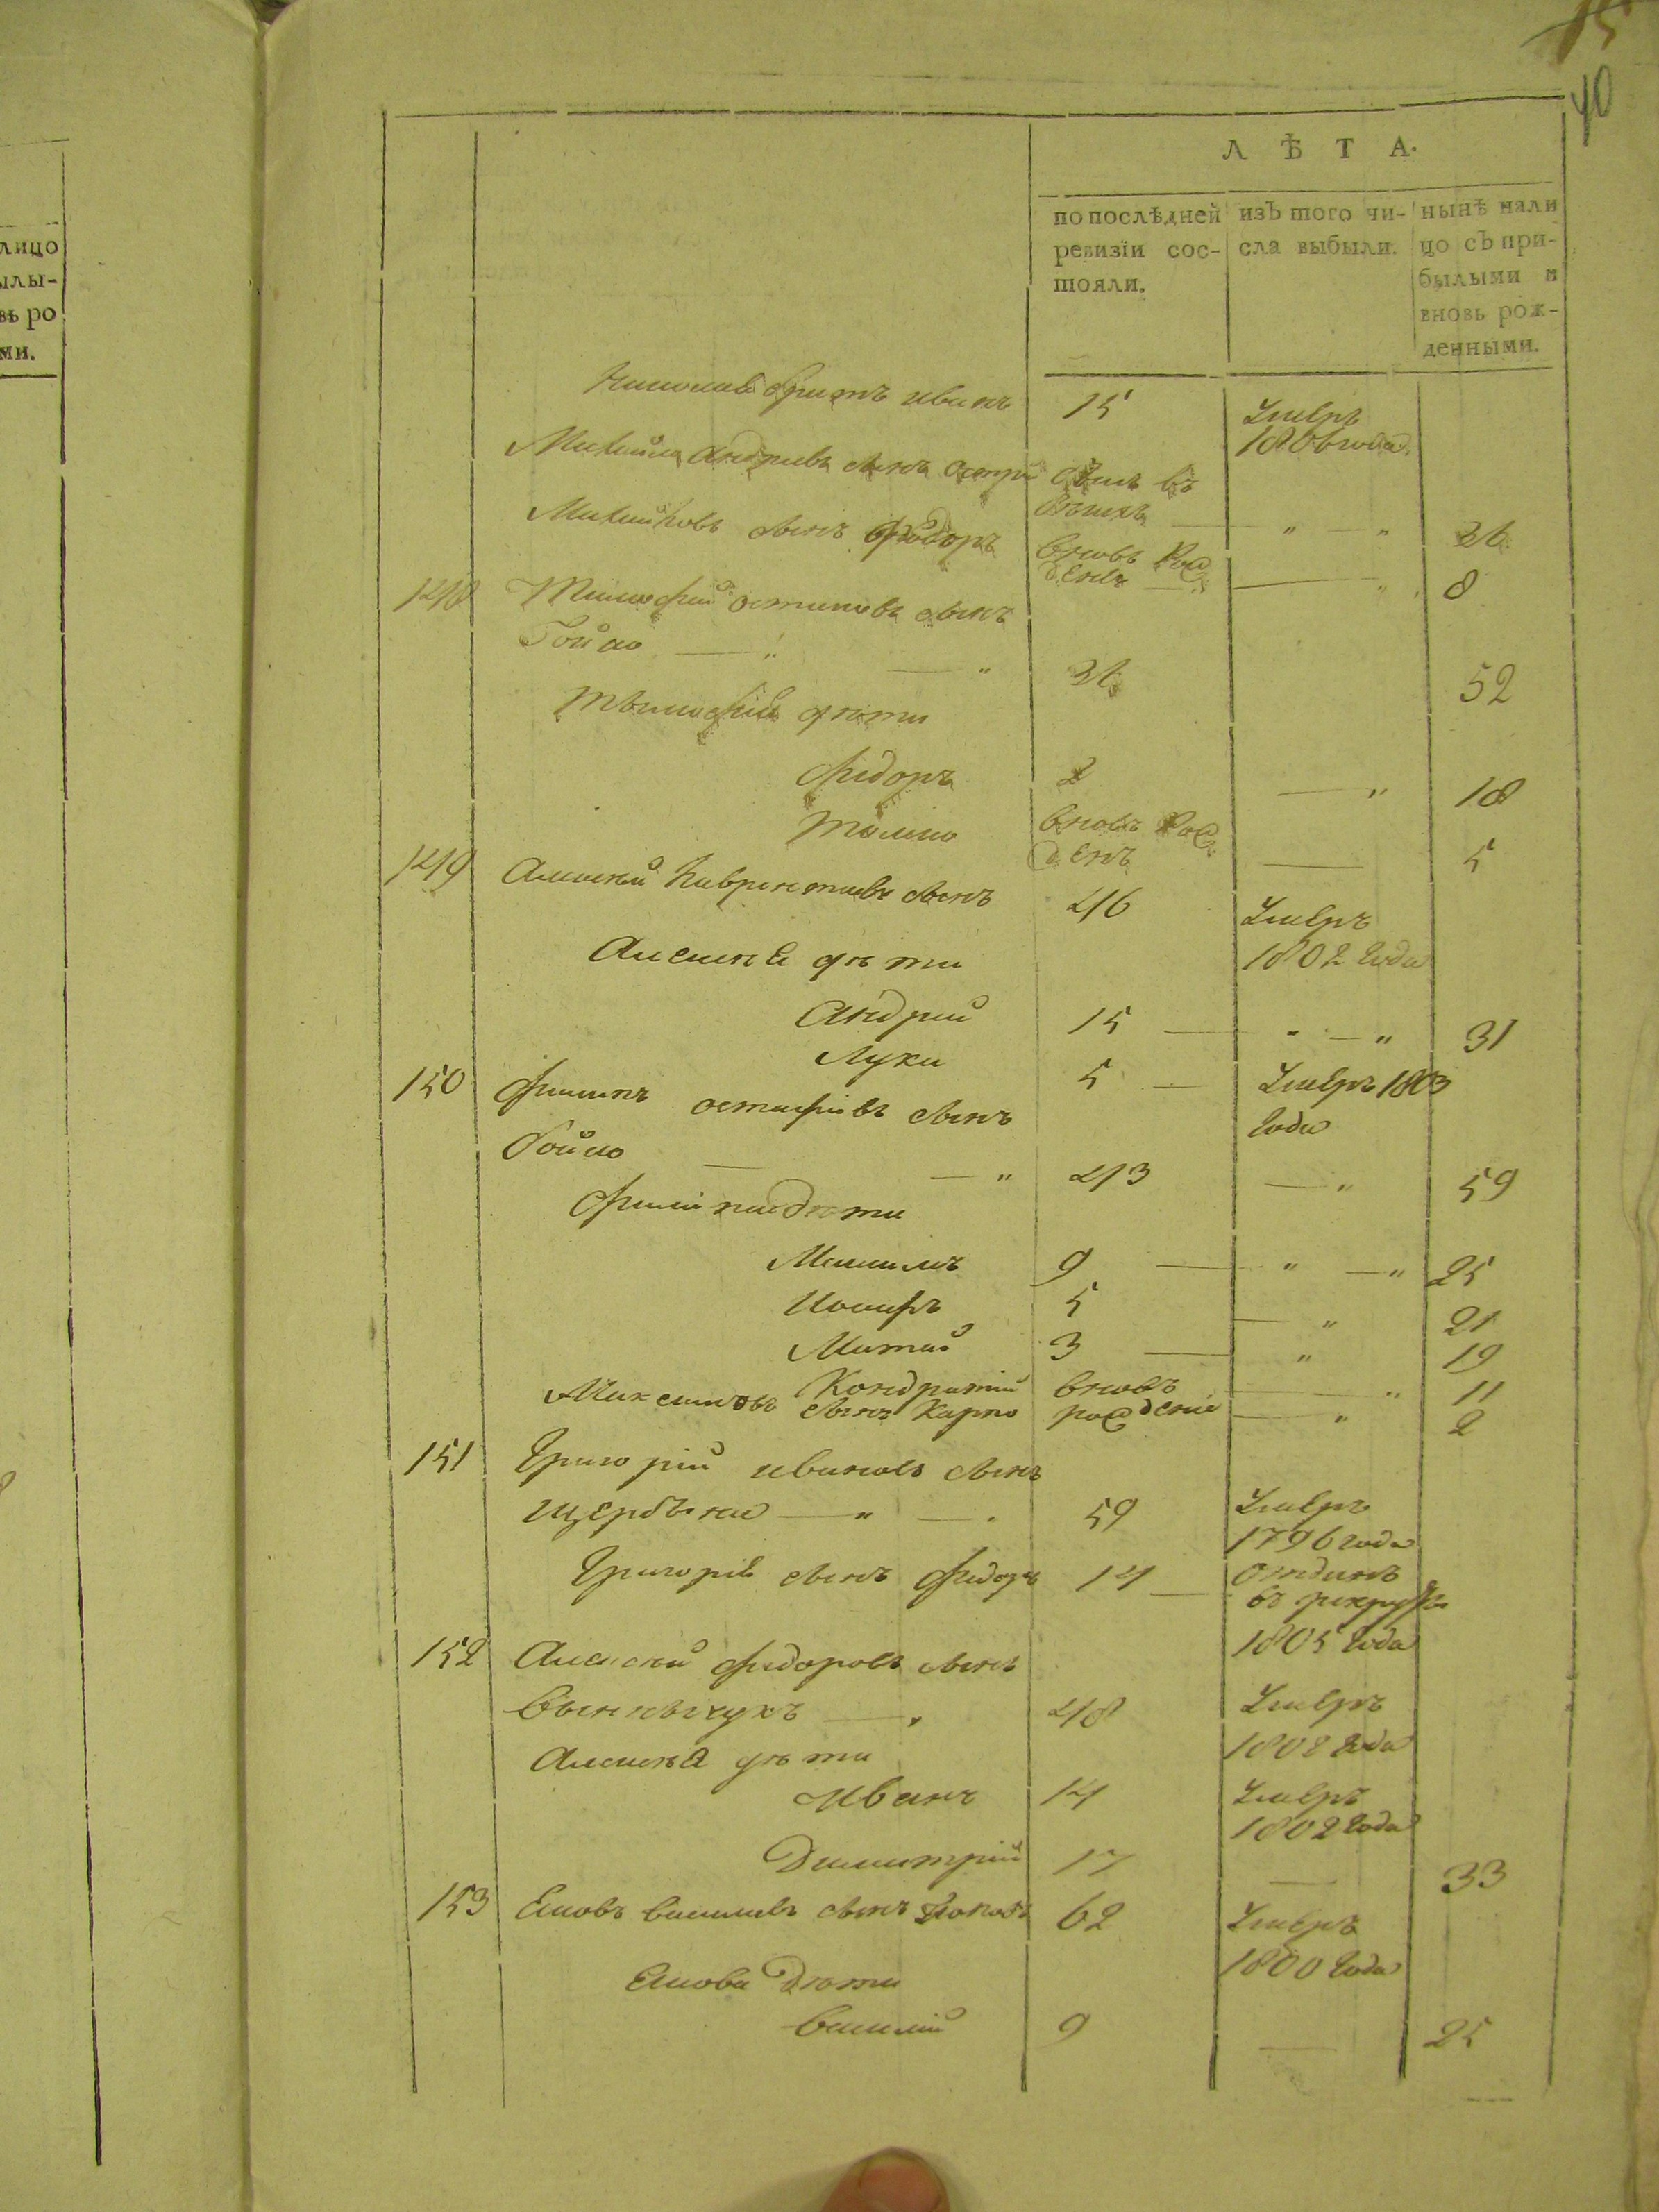 15
40
Л Ѣ Т А.
по послѣдней
ревизїи сос-
тояли.
изЪ того чи-
сла выбыли.
нынѣ нали
цо сЪ при-
былыми и
вновь рож-
денными.
лицо
ылы-
вь ро
ми.
братъ иванъ 15 Умеръ
1806 года
Михайла андриевъ сынъ
сынъ Фіодоръ 8
вновь рож
денъ
148 Тимофій остаповъ сынъ
Бойко 36 52
Тымофія дѣти
Фидоръ 2 18
вновь рож
денъ 5
149 Алексій Лаврентиевъ сынъ 46 Умеръ
1802 года
Алексия дѣти
Андрий 15 31
Лука 5 Умеръ 1803
года
150 Филипъ остафіевъ сынъ
Бойко 43 59
Филипа дѣти
Максимъ 9 25
Иосифъ 5 21
Матвій 3 19
Кондратій вновь 11
Максимовъ сынъ Карпо рождени 2
151 Григорій ивановъ сынъ
Щербына 59 Умеръ
1796 года
Григорія сынъ Фидоръ 14 отданъ
въ рекруты
1805 года
152 Алексій Фидоровъ сынъ
48 Умеръ
1802 года
Алексия дѣти
Иванъ 14 Умеръ
1802 года
Димитрій 17 33
153 Яковъ василиевъ сынъ 62 Умеръ
1800 года
Якова дѣти
василій 9 25